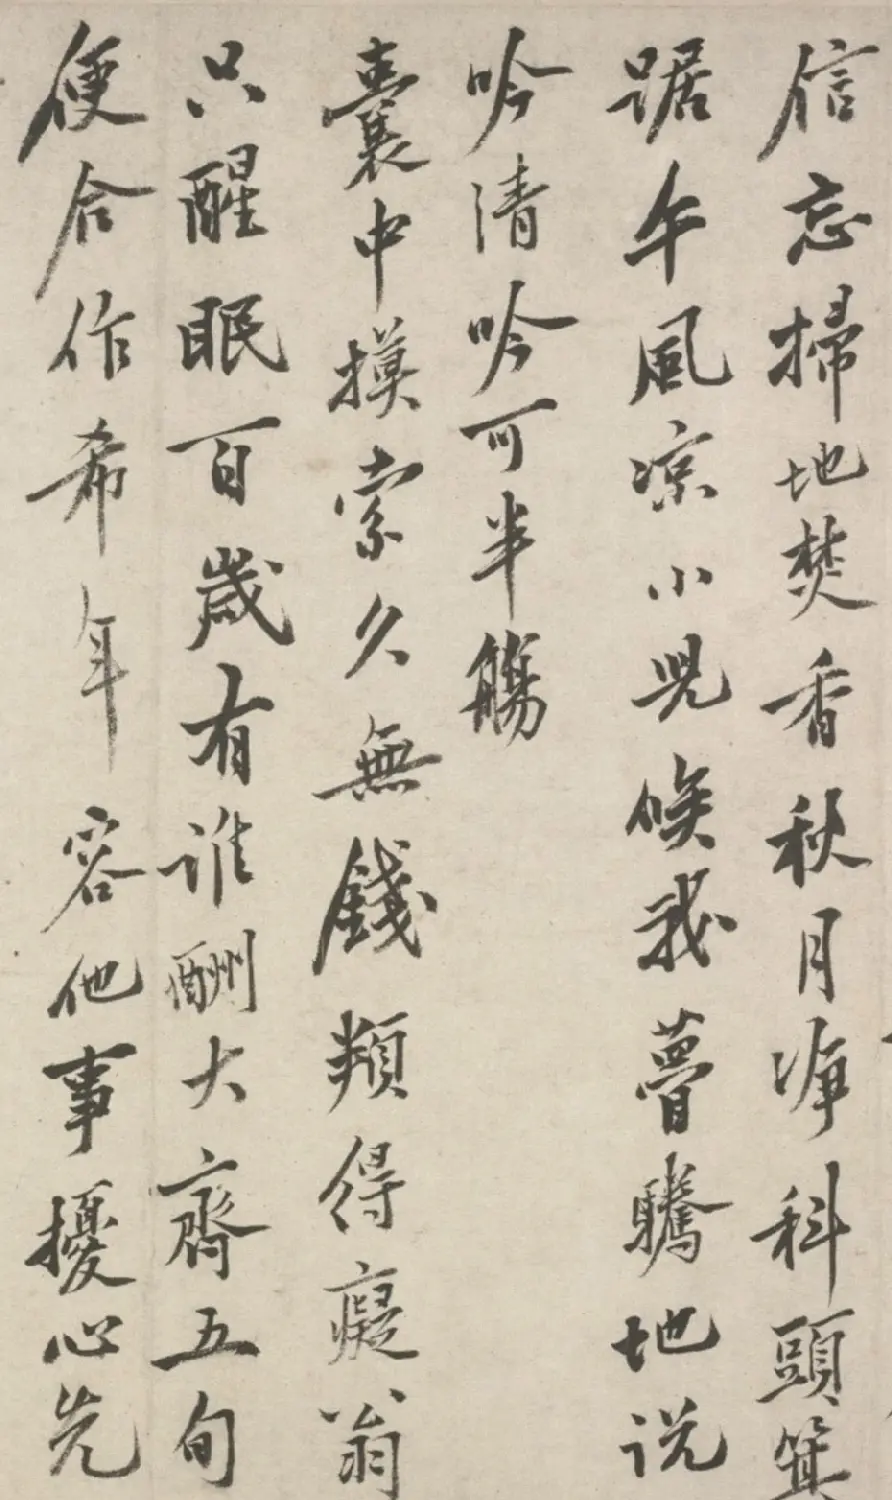 信忘掃地焚香秋月凈科頭箕
踞午風凉小児喚我瞢騰地説
吟清吟可半觴
囊中摸索久無錢頻得癡翁
只醒眠百歲有誰酬大齊五旬
便合作希年容他事擾心先